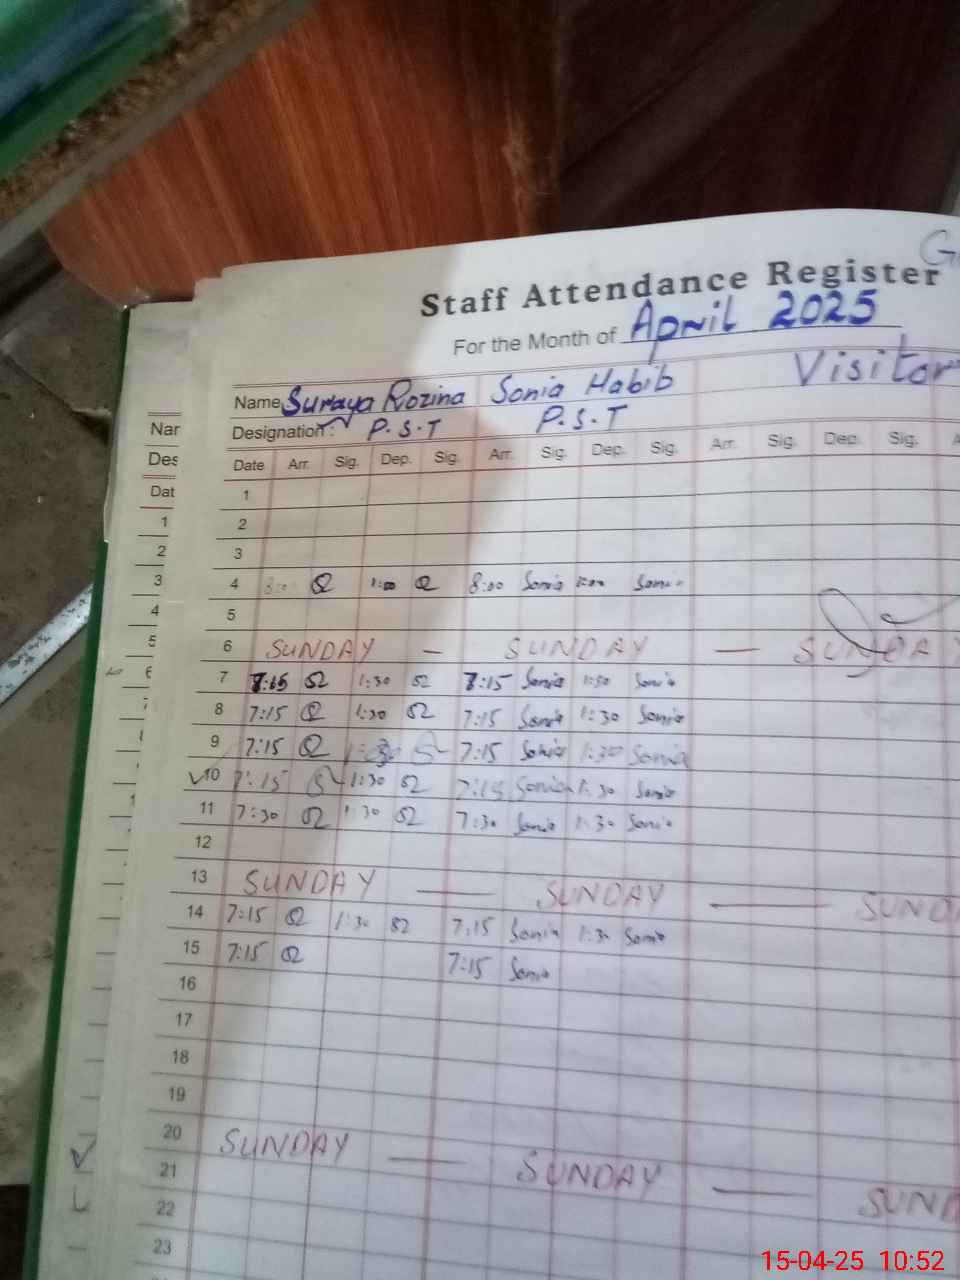 G
Staff Attendance Register
For the Month of April 2025
Name Suraya Rozina Sonia Habib Visitor
Designation: P.S.T P.S.T
Date Arr. Sig. Dep. Sig. Arr. Sig. Dep. Sig. Arr. Sig. Dep. Sig. A
1
2
3
4 8:00 1:00 8:00 Sonia 1:00 Sonia
5
6 SUNDAY — SUNDAY — SUNDAY
7 7:15 1:30 7:15 Sonia 1:30 Sonia
8 7:15 1:30 7:15 Sonia 1:30 Sonia
9 7:15 1:30 7:15 Sonia 1:30 Sonia
10 7:15 1:30 7:15 Sonia 1:30 Sonia
11 7:30 1:30 7:30 Sonia 1:30 Sonia
12
13 SUNDAY — SUNDAY — SUND
14 7:15 1:30 7:15 Sonia 1:30 Sonia
15 7:15 7:15 Sonia
16
17
18
19
20 SUNDAY — SUNDAY — SUND
21
22
23
Nar
Des
Dat
1
2
3
4
5
6
7
1
15-04-25 10:52